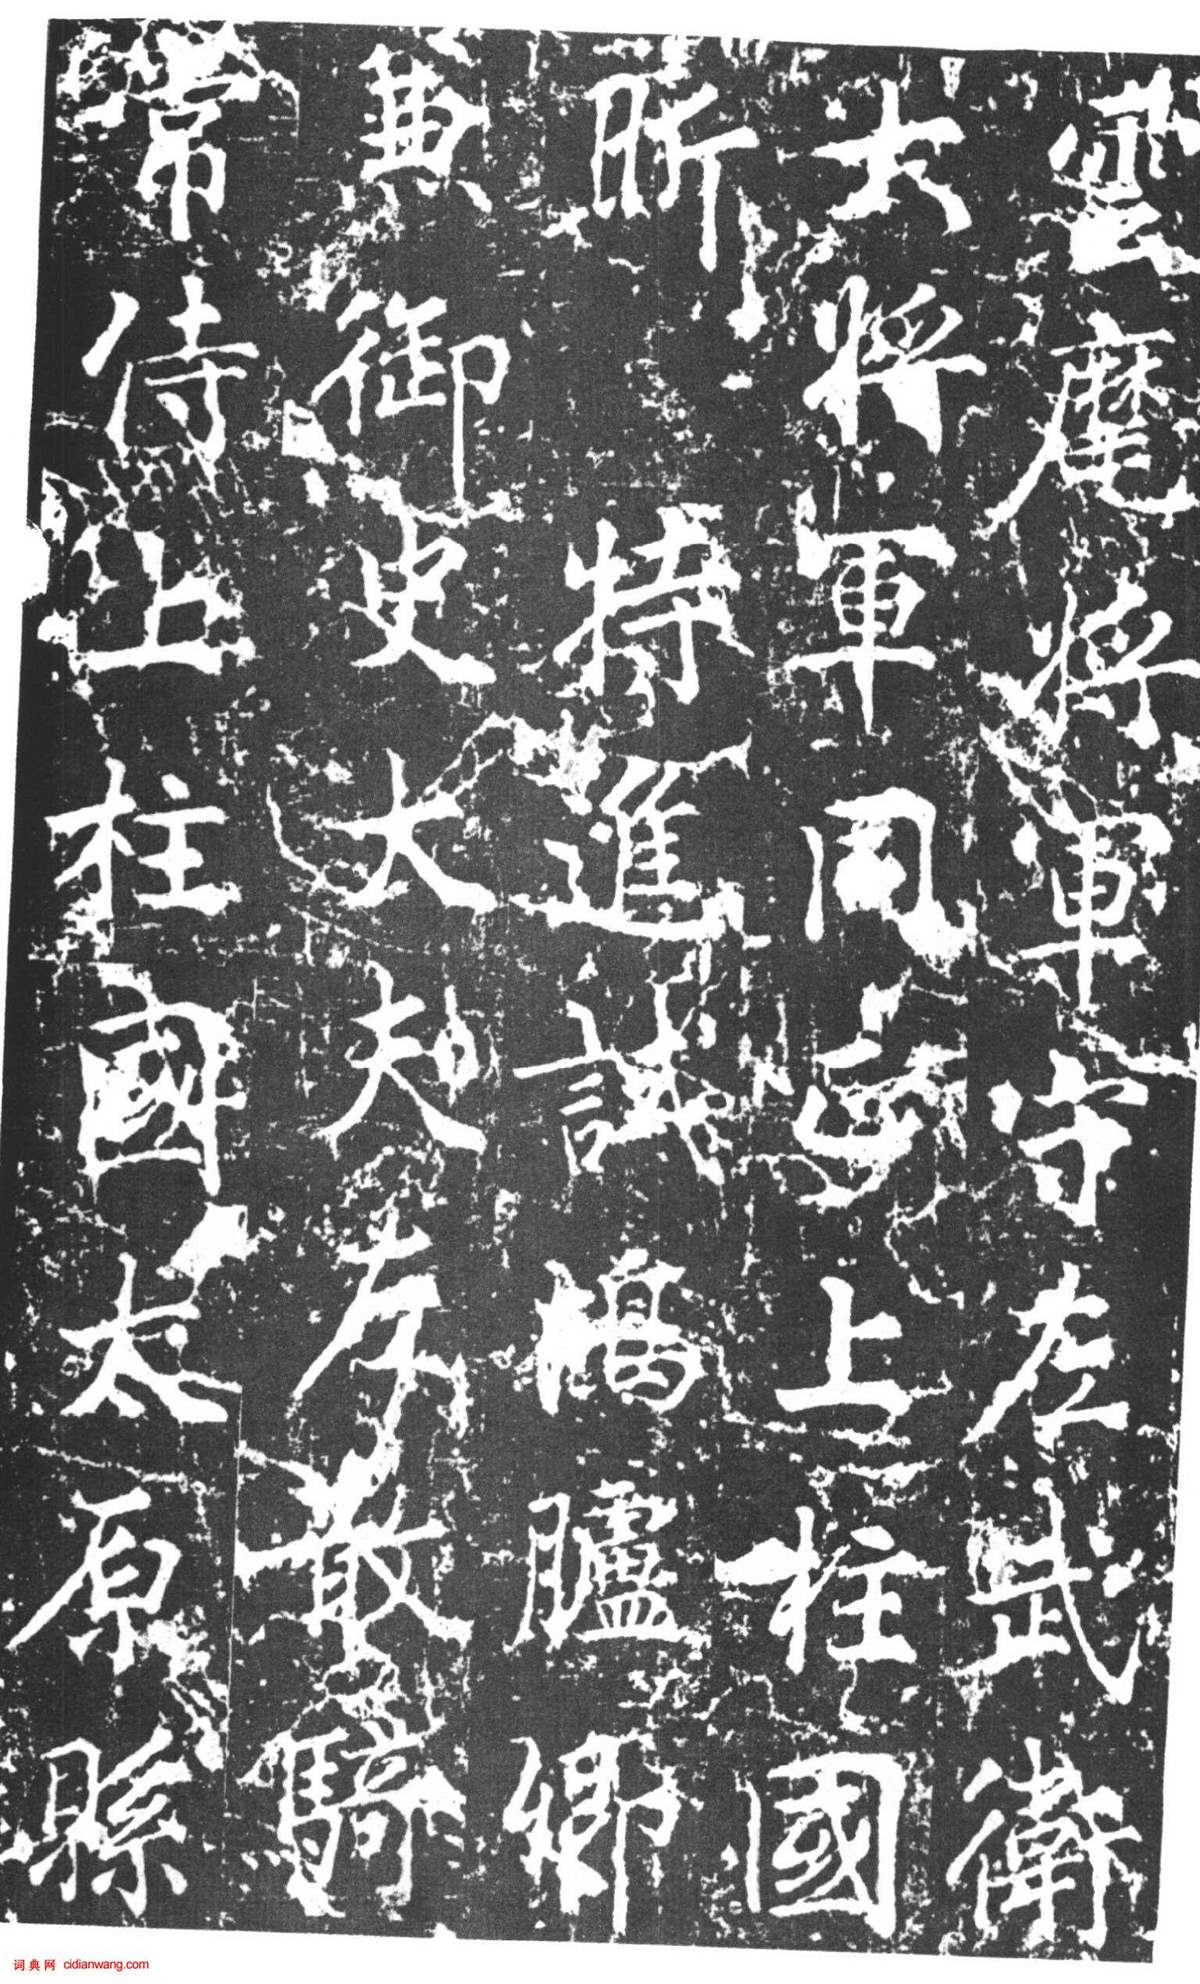 雲麾將軍守左武衛
大將軍同正上柱國
昕 特進試鴻臚卿
兼御史大夫左散騎
常侍上柱國太原縣
词典网 cidianwang.com